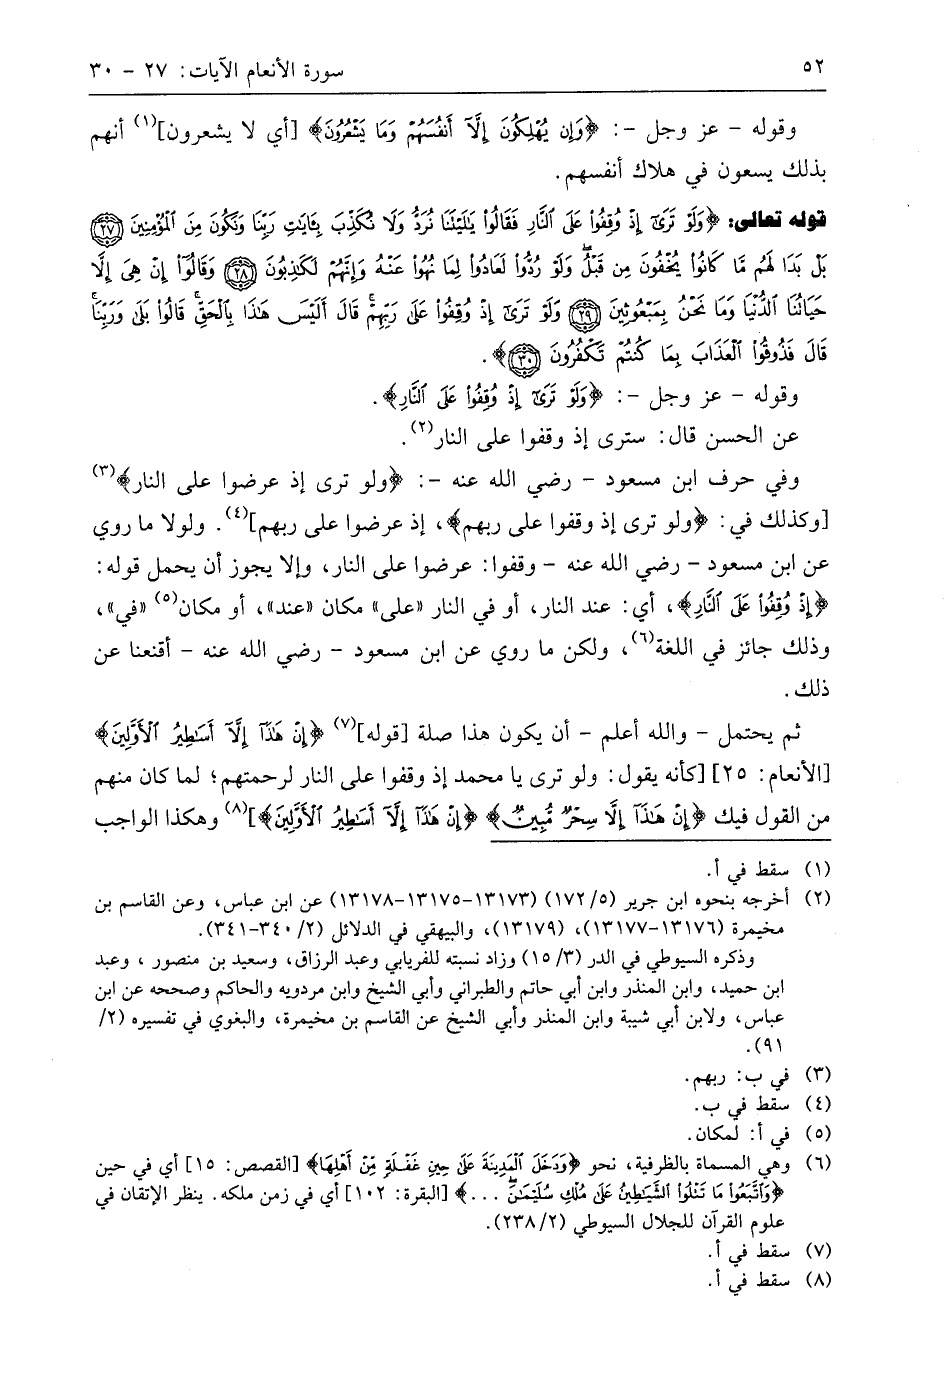 ٥٢
سورة الأنعام الآيات: ٢٧ - ٣٠
وقوله - عز وجل -: ﴿وَإِن يُهْلِكُونَ إِلَّآ أَنفُسَهُمْ وَمَا يَشْعُرُونَ﴾ [أي لا يشعرون](١) أنهم
بذلك يسعون في هلاك أنفسهم.
قوله تعالى: ﴿وَلَوْ تَرَىٰٓ إِذْ وُقِفُوا۟ عَلَى ٱلنَّارِ فَقَالُوا۟ يَٰلَيْتَنَا نُرَدُّ وَلَا نُكَذِّبَ بِـَٔايَٰتِ رَبِّنَا وَنَكُونَ مِنَ ٱلْمُؤْمِنِينَ ﴿٢٧﴾
بَلْ بَدَا لَهُم مَّا كَانُوا۟ يُخْفُونَ مِن قَبْلُ ۖ وَلَوْ رُدُّوا۟ لَعَادُوا۟ لِمَا نُهُوا۟ عَنْهُ وَإِنَّهُمْ لَكَٰذِبُونَ ﴿٢٨﴾ وَقَالُوٓا۟ إِنْ هِىَ إِلَّا
حَيَاتُنَا ٱلدُّنْيَا وَمَا نَحْنُ بِمَبْعُوثِينَ ﴿٢٩﴾ وَلَوْ تَرَىٰٓ إِذْ وُقِفُوا۟ عَلَىٰ رَبِّهِمْ ۚ قَالَ أَلَيْسَ هَٰذَا بِٱلْحَقِّ ۚ قَالُوا۟ بَلَىٰ وَرَبِّنَا ۚ
قَالَ فَذُوقُوا۟ ٱلْعَذَابَ بِمَا كُنتُمْ تَكْفُرُونَ ﴿٣٠﴾﴾.
وقوله - عز وجل -: ﴿وَلَوْ تَرَىٰٓ إِذْ وُقِفُوا۟ عَلَى ٱلنَّارِ﴾.
عن الحسن قال: سترى إذ وقفوا على النار(٢).
وفي حرف ابن مسعود - رضي الله عنه -: ﴿ولو ترى إذ عرضوا على النار﴾(٣)
[وكذلك في: ﴿ولو ترى إذ وقفوا على ربهم﴾، إذ عرضوا على ربهم](٤). ولولا ما روي
عن ابن مسعود - رضي الله عنه - وقفوا: عرضوا على النار، وإلا يجوز أن يحمل قوله:
﴿إِذْ وُقِفُوا۟ عَلَى ٱلنَّارِ﴾، أي: عند النار، أو في النار «على» مكان «عند»، أو مكان(٥) «في»،
وذلك جائز في اللغة(٦)، ولكن ما روي عن ابن مسعود - رضي الله عنه - أقنعنا عن
ذلك.
ثم يحتمل - والله أعلم - أن يكون هذا صلة [قوله](٧) ﴿إِنْ هَٰذَآ إِلَّآ أَسَٰطِيرُ ٱلْأَوَّلِينَ﴾
[الأنعام: ٢٥] [كأنه يقول: ولو ترى يا محمد إذ وقفوا على النار لرحمتهم؛ لما كان منهم
من القول فيك ﴿إِنْ هَٰذَآ إِلَّا سِحْرٌ مُّبِينٌ﴾ ﴿إِنْ هَٰذَآ إِلَّآ أَسَٰطِيرُ ٱلْأَوَّلِينَ﴾](٨) وهكذا الواجب
(١) سقط في أ.
(٢) أخرجه بنحوه ابن جرير (٥/ ١٧٢) (١٣١٧٣-١٣١٧٥-١٣١٧٨) عن ابن عباس، وعن القاسم بن
مخيمرة (١٣١٧٦-١٣١٧٧)، (١٣١٧٩)، والبيهقي في الدلائل (٢/ ٣٤٠-٣٤١).
وذكره السيوطي في الدر (٣/ ١٥) وزاد نسبته للفريابي وعبد الرزاق، وسعيد بن منصور ، وعبد
ابن حميد، وابن المنذر وابن أبي حاتم والطبراني وأبي الشيخ وابن مردويه والحاكم وصححه عن ابن
عباس، ولابن أبي شيبة وابن المنذر وأبي الشيخ عن القاسم بن مخيمرة، والبغوي في تفسيره (٢/
٩١).
(٣) في ب: ربهم.
(٤) سقط في ب.
(٥) في أ: لمكان.
(٦) وهي المسماة بالظرفية، نحو ﴿وَدَخَلَ ٱلْمَدِينَةَ عَلَىٰ حِينِ غَفْلَةٍ مِّنْ أَهْلِهَا﴾ [القصص: ١٥] أي في حين
﴿وَٱتَّبَعُوا۟ مَا تَتْلُوا۟ ٱلشَّيَٰطِينُ عَلَىٰ مُلْكِ سُلَيْمَٰنَ ۖ ...﴾ [البقرة: ١٠٢] أي في زمن ملكه. ينظر الإتقان في
علوم القرآن للجلال السيوطي (٢٣٨/٢).
(٧) سقط في أ.
(٨) سقط في أ.